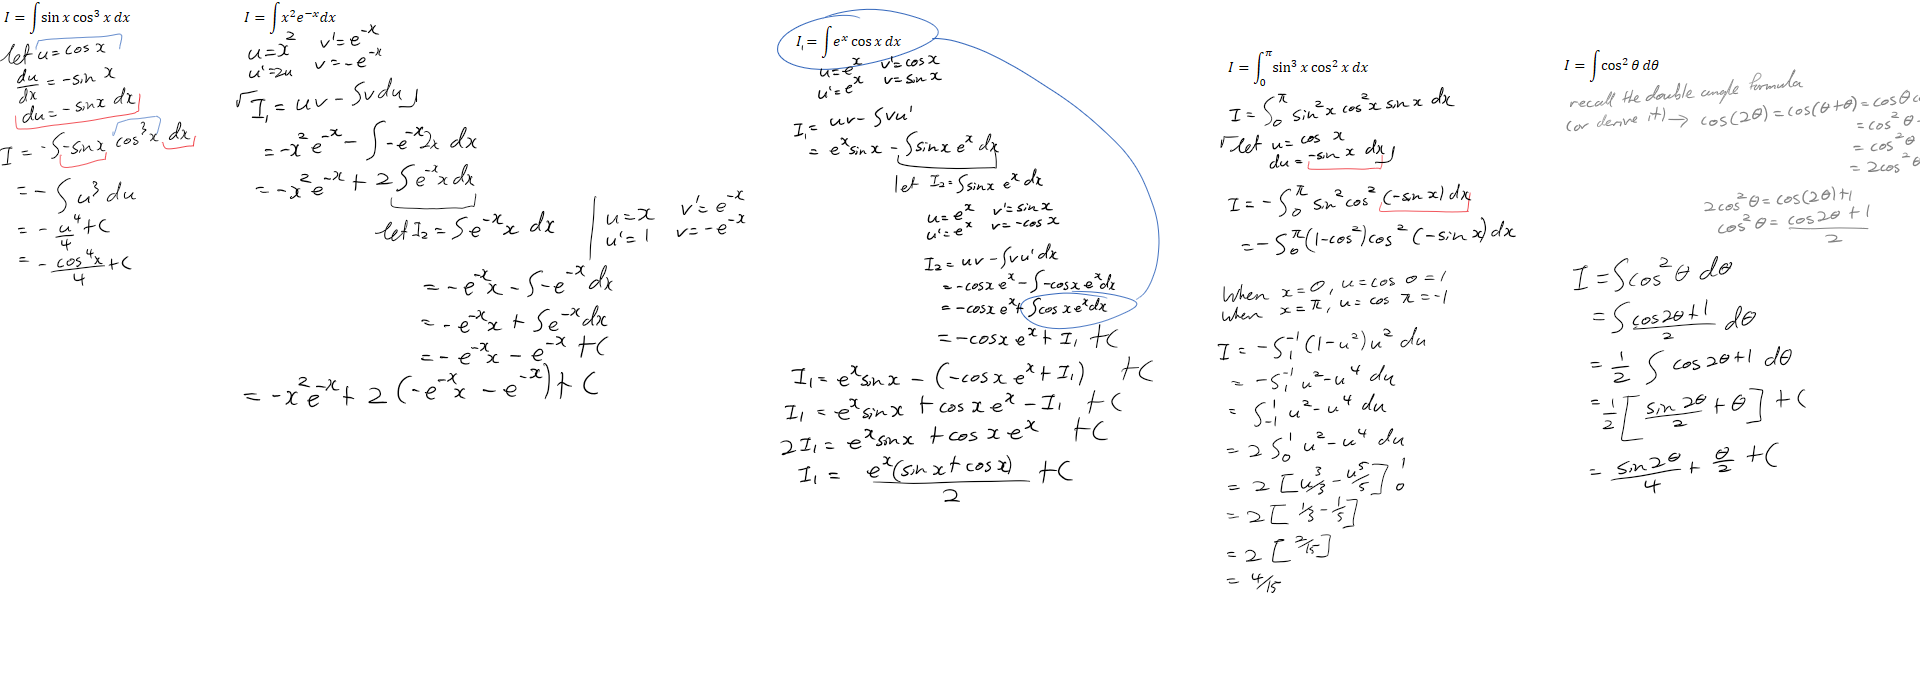 I = ∫ sin x cos³ x dx
let u = cos x
du/dx = -sin x
du = -sinx dx
I = -∫ -sinx cos³x dx
= -∫ u³ du
= -u⁴/4 + C
= -cos⁴x/4 + C
I = ∫ x² e⁻ˣ dx
u = x² v' = e⁻ˣ
u' = 2u v = -e⁻ˣ
I₁ = uv - ∫vdu
= -x² e⁻ˣ - ∫ -e⁻ˣ 2x dx
= -x² e⁻ˣ + 2 ∫ e⁻ˣ x dx
let I₂ = ∫ e⁻ˣ x dx
u = x v' = e⁻ˣ
u' = 1 v = -e⁻ˣ
= -e⁻ˣ x - ∫ -e⁻ˣ dx
= -e⁻ˣ x + ∫ e⁻ˣ dx
= -e⁻ˣ x - e⁻ˣ + C
= -x² e⁻ˣ + 2(-e⁻ˣ x - e⁻ˣ) + C
I₁ = ∫ eˣ cos x dx
u = eˣ v' = cos x
u' = eˣ v = sin x
I₁ = uv - ∫vu'
= eˣ sin x - ∫ sinx eˣ dx
let I₂ = ∫ sinx eˣ dx
u = eˣ v' = sin x
u' = eˣ v = -cos x
I₂ = uv - ∫vu' dx
= -cosx eˣ - ∫ -cosx eˣ dx
= -cosx eˣ + ∫ cos x eˣ dx
= -cosx eˣ + I₁ + C
I₁ = eˣ sinx - (-cosx eˣ + I₁) + C
I₁ = eˣ sinx + cosx eˣ - I₁ + C
2I₁ = eˣ sinx + cos x eˣ + C
I₁ = eˣ(sin x + cos x)/2 + C
I = ∫₀^π sin³ x cos² x dx
I = ∫₀^π sin²x cos²x sinx dx
let u = cos x
du = -sin x dx
I = -∫₀^π sin² cos² (-sin x) dx
= -∫₀^π (1-cos²) cos² (-sin x) dx
When x = 0, u = cos 0 = 1
When x = π, u = cos π = -1
I = -∫₁⁻¹ (1-u²) u² du
= -∫₁⁻¹ u² - u⁴ du
= ∫₋₁¹ u² - u⁴ du
= 2 ∫₀¹ u² - u⁴ du
= 2 [u³/3 - u⁵/5]₀¹
= 2 [1/3 - 1/5]
= 2 [2/15]
= 4/15
I = ∫ cos² θ dθ
recall the double angle formula
(or derive it) → cos(2θ) = cos(θ+θ) = cosθ
= cos²θ
= cos²θ
= 2cos²θ
2cos²θ = cos(2θ)+1
cos²θ = cos2θ + 1/2
I = ∫cos²θ dθ
= ∫ cos2θ+1/2 dθ
= 1/2 ∫ cos2θ+1 dθ
= 1/2 [sin 2θ/2 + θ] + C
= sin2θ/4 + θ/2 + C